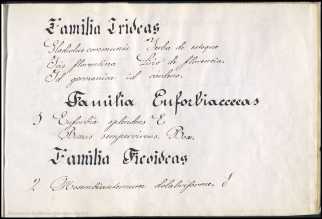 Familia Irideas
Gladiolus communis Yerba de estoque
Iris florentina Lirio de florencia
Id germanica id cardeno
Familia Euforbiaceeas
3 Euforbia splendens E
Buxus sempervirens. Box.
Familia Ficoideas
2 Mesembriantemum dolabriforme